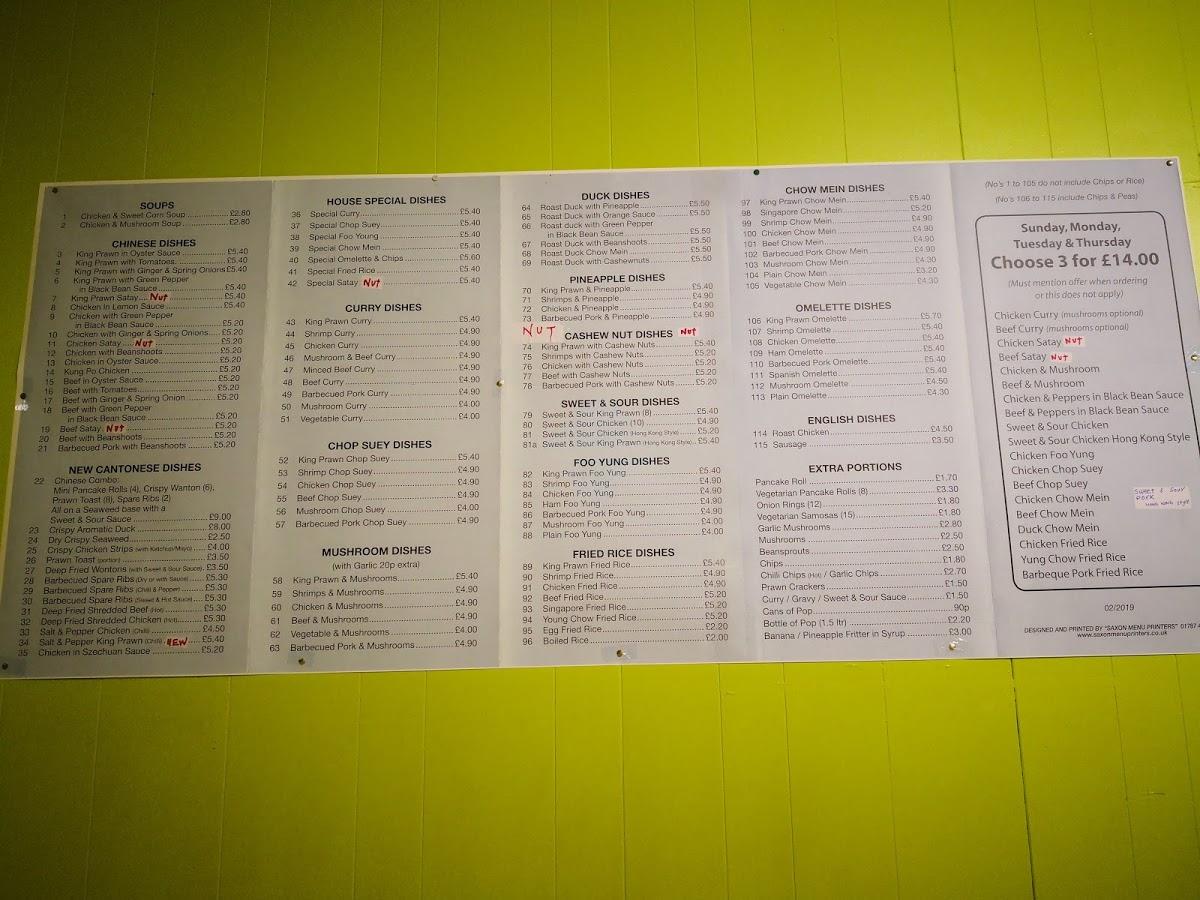 SOUPS
1 Chicken & Sweet Corn Soup £2.80
2 Chicken & Mushroom Soup £2.80
CHINESE DISHES
3 King Prawn in Oyster Sauce £5.40
4 King Prawn with Tomatoes £5.40
5 King Prawn with Ginger & Spring Onions £5.40
6 King Prawn with Green Pepper
in Black Bean Sauce £5.40
7 King Prawn Satay Nut £5.40
8 Chicken in Lemon Sauce £5.40
9 Chicken with Green Pepper
in Black Bean Sauce £5.20
10 Chicken with Ginger & Spring Onions £5.20
11 Chicken Satay Nut £5.20
12 Chicken with Beanshoots £5.20
13 Chicken in Oyster Sauce £5.20
14 Kung Po Chicken £5.20
15 Beef in Oyster Sauce £5.20
16 Beef with Tomatoes £5.20
17 Beef with Ginger & Spring Onion £5.20
18 Beef with Green Pepper
in Black Bean Sauce £5.20
19 Beef Satay Nut £5.20
20 Beef with Beanshoots £5.20
21 Barbecued Pork with Beanshoots £5.20
NEW CANTONESE DISHES
22 Chinese Combo:
Mini Pancake Rolls (4), Crispy Wanton (6),
Prawn Toast (8), Spare Ribs (2)
All on a Seaweed base with a
Sweet & Sour Sauce £9.00
23 Crispy Aromatic Duck £8.00
24 Dry Crispy Seaweed £2.50
25 Crispy Chicken Strips (with Ketchup/Mayo) £4.00
26 Prawn Toast (portion) £3.50
27 Deep Fried Wontons (with Sweet & Sour Sauce) £3.50
28 Barbecued Spare Ribs (Dry or with Sauce) £5.30
29 Barbecued Spare Ribs (Chilli & Pepper) £5.30
30 Barbecued Spare Ribs (Sweet & Hot Sauce) £5.30
31 Deep Fried Shredded Beef (Hot) £5.30
32 Deep Fried Shredded Chicken (Hot) £5.30
33 Salt & Pepper Chicken (Chilli) £4.50
34 Salt & Pepper King Prawn (Chilli) NEW £5.40
35 Chicken in Szechuan Sauce £5.20
HOUSE SPECIAL DISHES
36 Special Curry £5.40
37 Special Chop Suey £5.40
38 Special Foo Yung £5.40
39 Special Chow Mein £5.40
40 Special Omelette & Chips £5.60
41 Special Fried Rice £5.40
42 Special Satay Nut £5.40
CURRY DISHES
43 King Prawn Curry £5.40
44 Shrimp Curry £4.90
45 Chicken Curry £4.90
46 Mushroom & Beef Curry £4.90
47 Minced Beef Curry £4.90
48 Beef Curry £4.90
49 Barbecued Pork Curry £4.90
50 Mushroom Curry £4.00
51 Vegetable Curry £4.00
CHOP SUEY DISHES
52 King Prawn Chop Suey £5.40
53 Shrimp Chop Suey £4.90
54 Chicken Chop Suey £4.90
55 Beef Chop Suey £4.90
56 Mushroom Chop Suey £4.00
57 Barbecued Pork Chop Suey £4.90
MUSHROOM DISHES
(with Garlic 20p extra)
58 King Prawn & Mushrooms £5.40
59 Shrimps & Mushrooms £4.90
60 Chicken & Mushrooms £4.90
61 Beef & Mushrooms £4.90
62 Vegetable & Mushrooms £4.00
63 Barbecued Pork & Mushrooms £4.90
DUCK DISHES
64 Roast Duck with Pineapple £5.50
65 Roast Duck with Orange Sauce £5.50
66 Roast duck with Green Pepper
in Black Bean Sauce £5.50
67 Roast Duck with Beanshoots £5.50
68 Roast Duck Chow Mein £5.50
69 Roast Duck with Cashewnuts £5.50
PINEAPPLE DISHES
70 King Prawn & Pineapple £5.40
71 Shrimps & Pineapple £4.90
72 Chicken & Pineapple £4.90
73 Barbecued Pork & Pineapple £4.90
NUT CASHEW NUT DISHES Nut
74 King Prawn with Cashew Nuts £5.40
75 Shrimps with Cashew Nuts £5.20
76 Chicken with Cashew Nuts £5.20
77 Beef with Cashew Nuts £5.20
78 Barbecued Pork with Cashew Nuts £5.20
SWEET & SOUR DISHES
79 Sweet & Sour King Prawn (8) £5.40
80 Sweet & Sour Chicken (10) £4.90
81 Sweet & Sour Chicken (Hong Kong Style) £5.20
81a Sweet & Sour King Prawn (Hong Kong Style) £5.40
FOO YUNG DISHES
82 King Prawn Foo Yung £5.40
83 Shrimp Foo Yung £4.90
84 Chicken Foo Yung £4.90
85 Ham Foo Yung £4.90
86 Barbecued Pork Foo Yung £4.90
87 Mushroom Foo Yung £4.00
88 Plain Foo Yung £4.00
FRIED RICE DISHES
89 King Prawn Fried Rice £5.40
90 Shrimp Fried Rice £4.90
91 Chicken Fried Rice £4.90
92 Beef Fried Rice £5.20
93 Singapore Fried Rice £5.20
94 Young Chow Fried Rice £5.20
95 Egg Fried Rice £2.20
96 Boiled Rice £2.00
CHOW MEIN DISHES
97 King Prawn Chow Mein £5.40
98 Singapore Chow Mein £5.20
99 Shrimp Chow Mein £4.90
100 Chicken Chow Mein £4.90
101 Beef Chow Mein £4.90
102 Barbecued Pork Chow Mein £4.90
103 Mushroom Chow Mein £4.30
104 Plain Chow Mein £3.20
105 Vegetable Chow Mein £4.30
OMELETTE DISHES
106 King Prawn Omelette £5.70
107 Shrimp Omelette £5.40
108 Chicken Omelette £5.40
109 Ham Omelette £5.40
110 Barbecued Pork Omelette £5.40
111 Spanish Omelette £5.40
112 Mushroom Omelette £4.50
113 Plain Omelette £4.30
ENGLISH DISHES
114 Roast Chicken £4.50
115 Sausage £3.50
EXTRA PORTIONS
Pancake Roll £1.70
Vegetarian Pancake Rolls (8) £3.30
Onion Rings (12) £1.80
Vegetarian Samosas (15) £1.80
Garlic Mushrooms £2.80
Mushrooms £2.50
Beansprouts £2.50
Chips £1.80
Chilli Chips (Hot) / Garlic Chips £2.70
Prawn Crackers £1.50
Curry / Gravy / Sweet & Sour Sauce £1.50
Cans of Pop 90p
Bottle of Pop (1.5 ltr) £2.20
Banana / Pineapple Fritter in Syrup £3.00
(No's 1 to 105 do not include Chips or Rice)
(No's 106 to 115 include Chips & Peas)
Sunday, Monday,
Tuesday & Thursday
Choose 3 for £14.00
(Must mention offer when ordering
or this does not apply)
Chicken Curry (mushrooms optional)
Beef Curry (mushrooms optional)
Chicken Satay Nut
Beef Satay Nut
Chicken & Mushroom
Beef & Mushroom
Chicken & Peppers in Black Bean Sauce
Beef & Peppers in Black Bean Sauce
Sweet & Sour Chicken
Sweet & Sour Chicken Hong Kong Style
Chicken Foo Yung
Chicken Chop Suey
Beef Chop Suey
Chicken Chow Mein
Beef Chow Mein
Duck Chow Mein
Chicken Fried Rice
Yung Chow Fried Rice
Barbeque Pork Fried Rice
SWEET & SOUR
PORK
HONG KONG STYLE
02/2019
DESIGNED AND PRINTED BY "SAXON MENU PRINTERS" 01787
www.saxonmenuprinters.co.uk